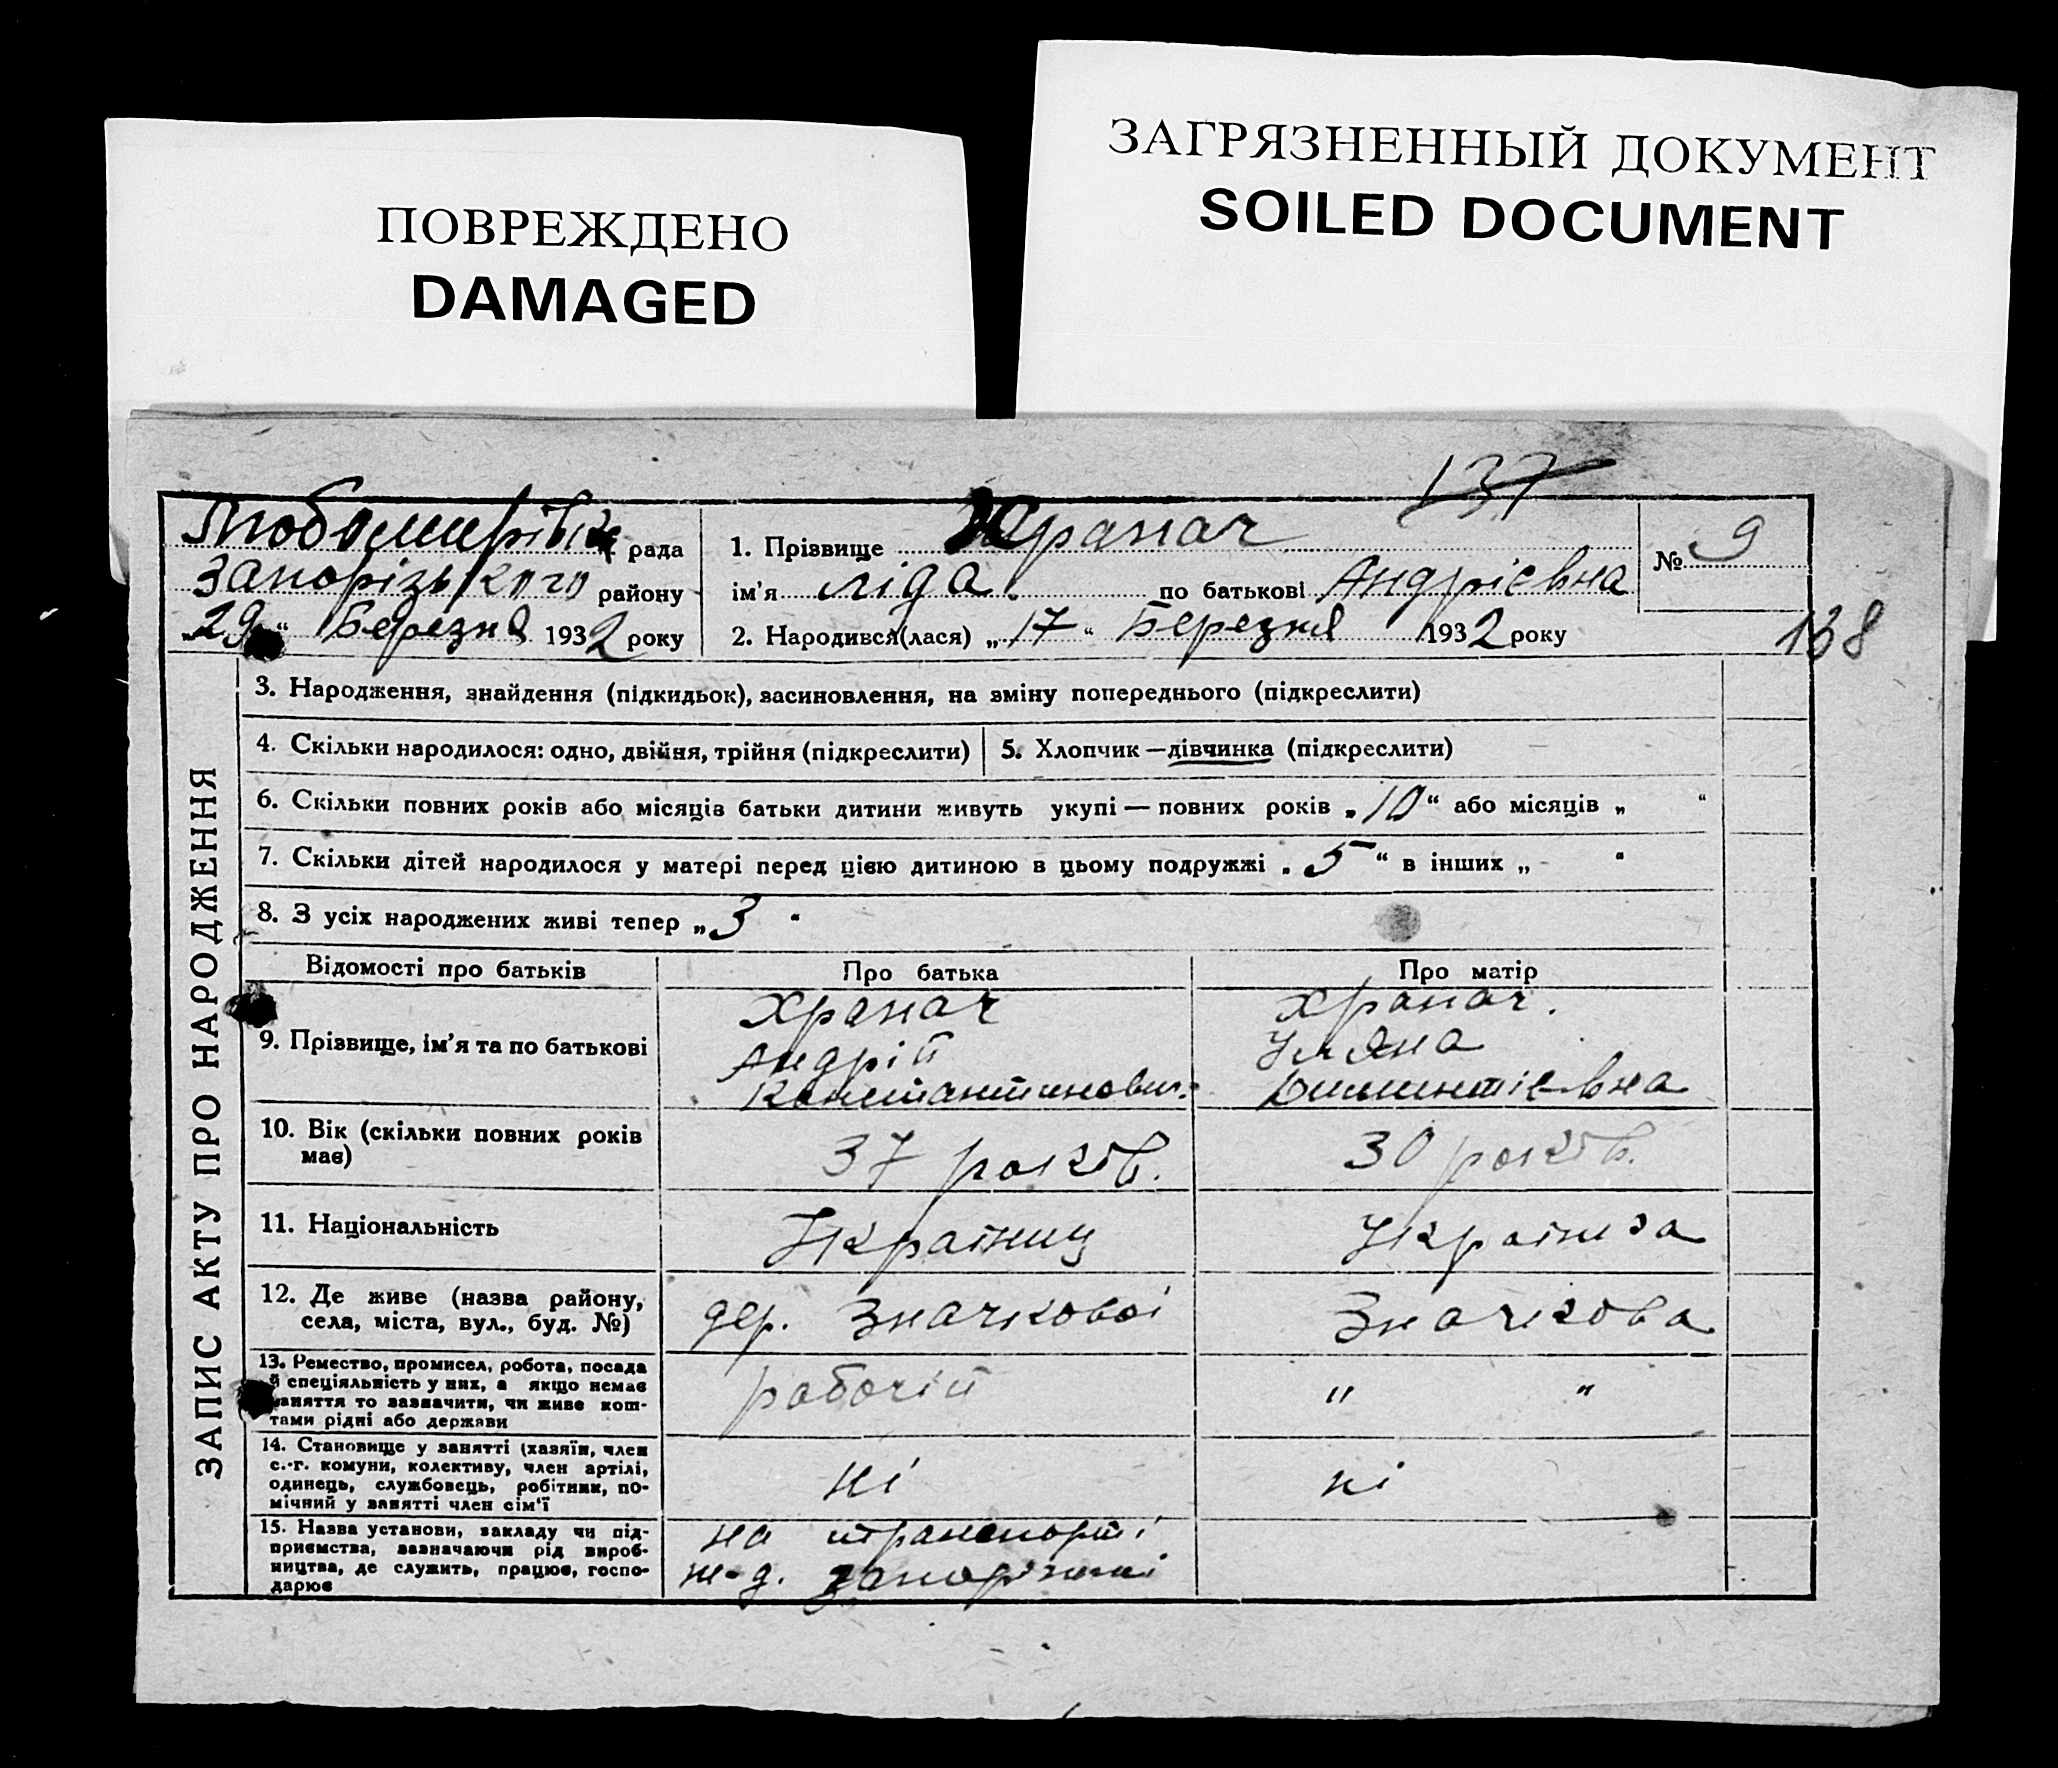 ПОВРЕЖДЕНО
DAMAGED
ЗАГРЯЗНЕННЫЙ ДОКУМЕНТ
SOILED DOCUMENT
137
рада
Запорізького району
29 " Березня 1932 року
1. Прізвище Храпач
№ 9
ім'я Ліда по батькові Андрієвна
2. Народився(лася) „17" Березня 1932 року
138
ЗАПИС АКТУ ПРО НАРОДЖЕННЯ
3. Народження, знайдення (підкидьок), засиновлення, на зміну попереднього (підкреслити)
4. Скільки народилося: одно, двійня, трійня (підкреслити)
5. Хлопчик — дівчинка (підкреслити)
6. Скільки повних років або місяців батьки дитини живуть укупі — повних років „10" або місяців „ "
7. Скільки дітей народилося у матері перед цією дитиною в цьому подружжі „5" в інших „ - "
8. З усіх народжених живі тепер „3 "
Відомості про батьків
Про батька
Про матір
9. Прізвище, ім'я та по батькові
Храпач
Андрій
Константинович
Храпач.
Уляна
10. Вік (скільки повних років
має)
37 років.
30 років.
11. Національність
Українец
Українка
12. Де живе (назва району,
села, міста, вул., буд. №)
дер. Значкової
Значкова
13. Ремество, промисел, робота, посада
й спеціяльність у них, а якщо немає
заняття то зазначити, чи живе кош-
тами рідні або держави
робочій
" "
14. Становище у занятті (хазяїн, член
с.-г. комуни, колективу, член артілі,
одинець, службовець, робітник, по-
мічний у занятті член сім'ї
ні
ні
15. Назва установи, закладу чи під-
приємства, зазначаючи рід вироб-
ництва, де служить, працює, госпо-
дарює
на транспорті
ж-д.